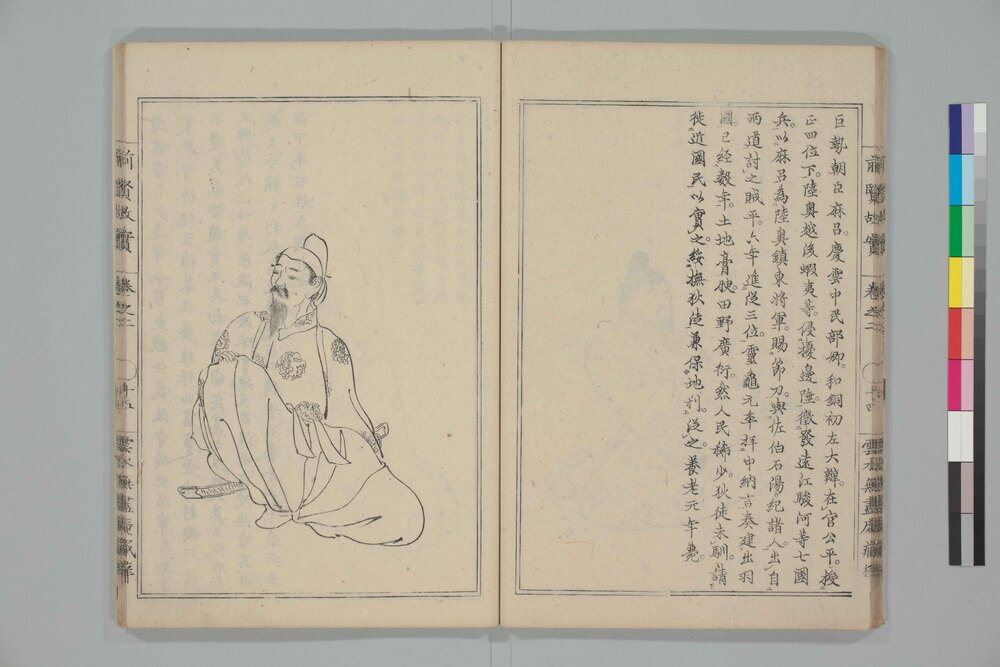 巨勢朝臣麻呂。慶雲中民部卿。和銅初左大辯。在官公平。授
正四位下。陸奥越後蝦夷等。侵擾邊陲。徴發遠江駿河等七國
兵。以麻呂為陸奥鎮東將軍。賜節刀。與佐伯石湯。紀諸人。出自
両道討之。賊平。六年進從三位。靈龜元年拝中納言。奏建出羽
國。已經數年。土地膏腴。田野廣衍。然人民稀少。狄徒未馴。請
徙近國民以實之。綏撫狄徒。兼保地利。從之。養老元年薨。
前賢故實
卷之二
十四
雲水無盡庵藏
前賢故實
卷之二
十五
雲水無盡庵藏